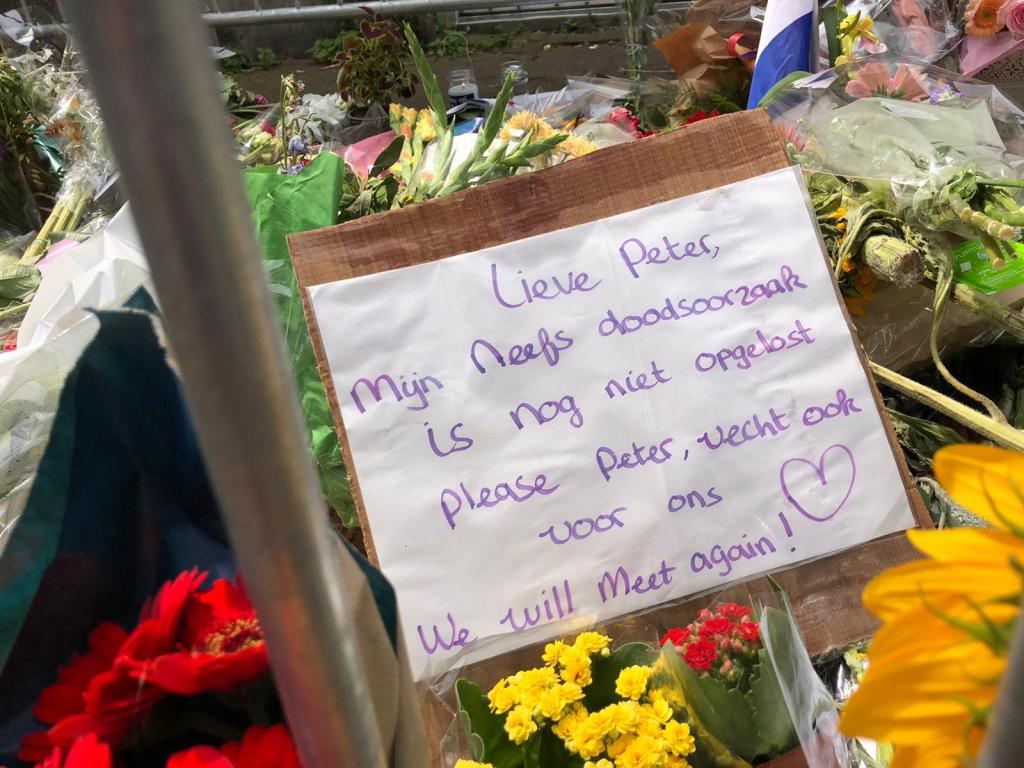 Lieve Peter,
Mijn neefs doodsoorzaak
is nog niet opgelost
please Peter, vecht ook
voor ons
We will Meet again!